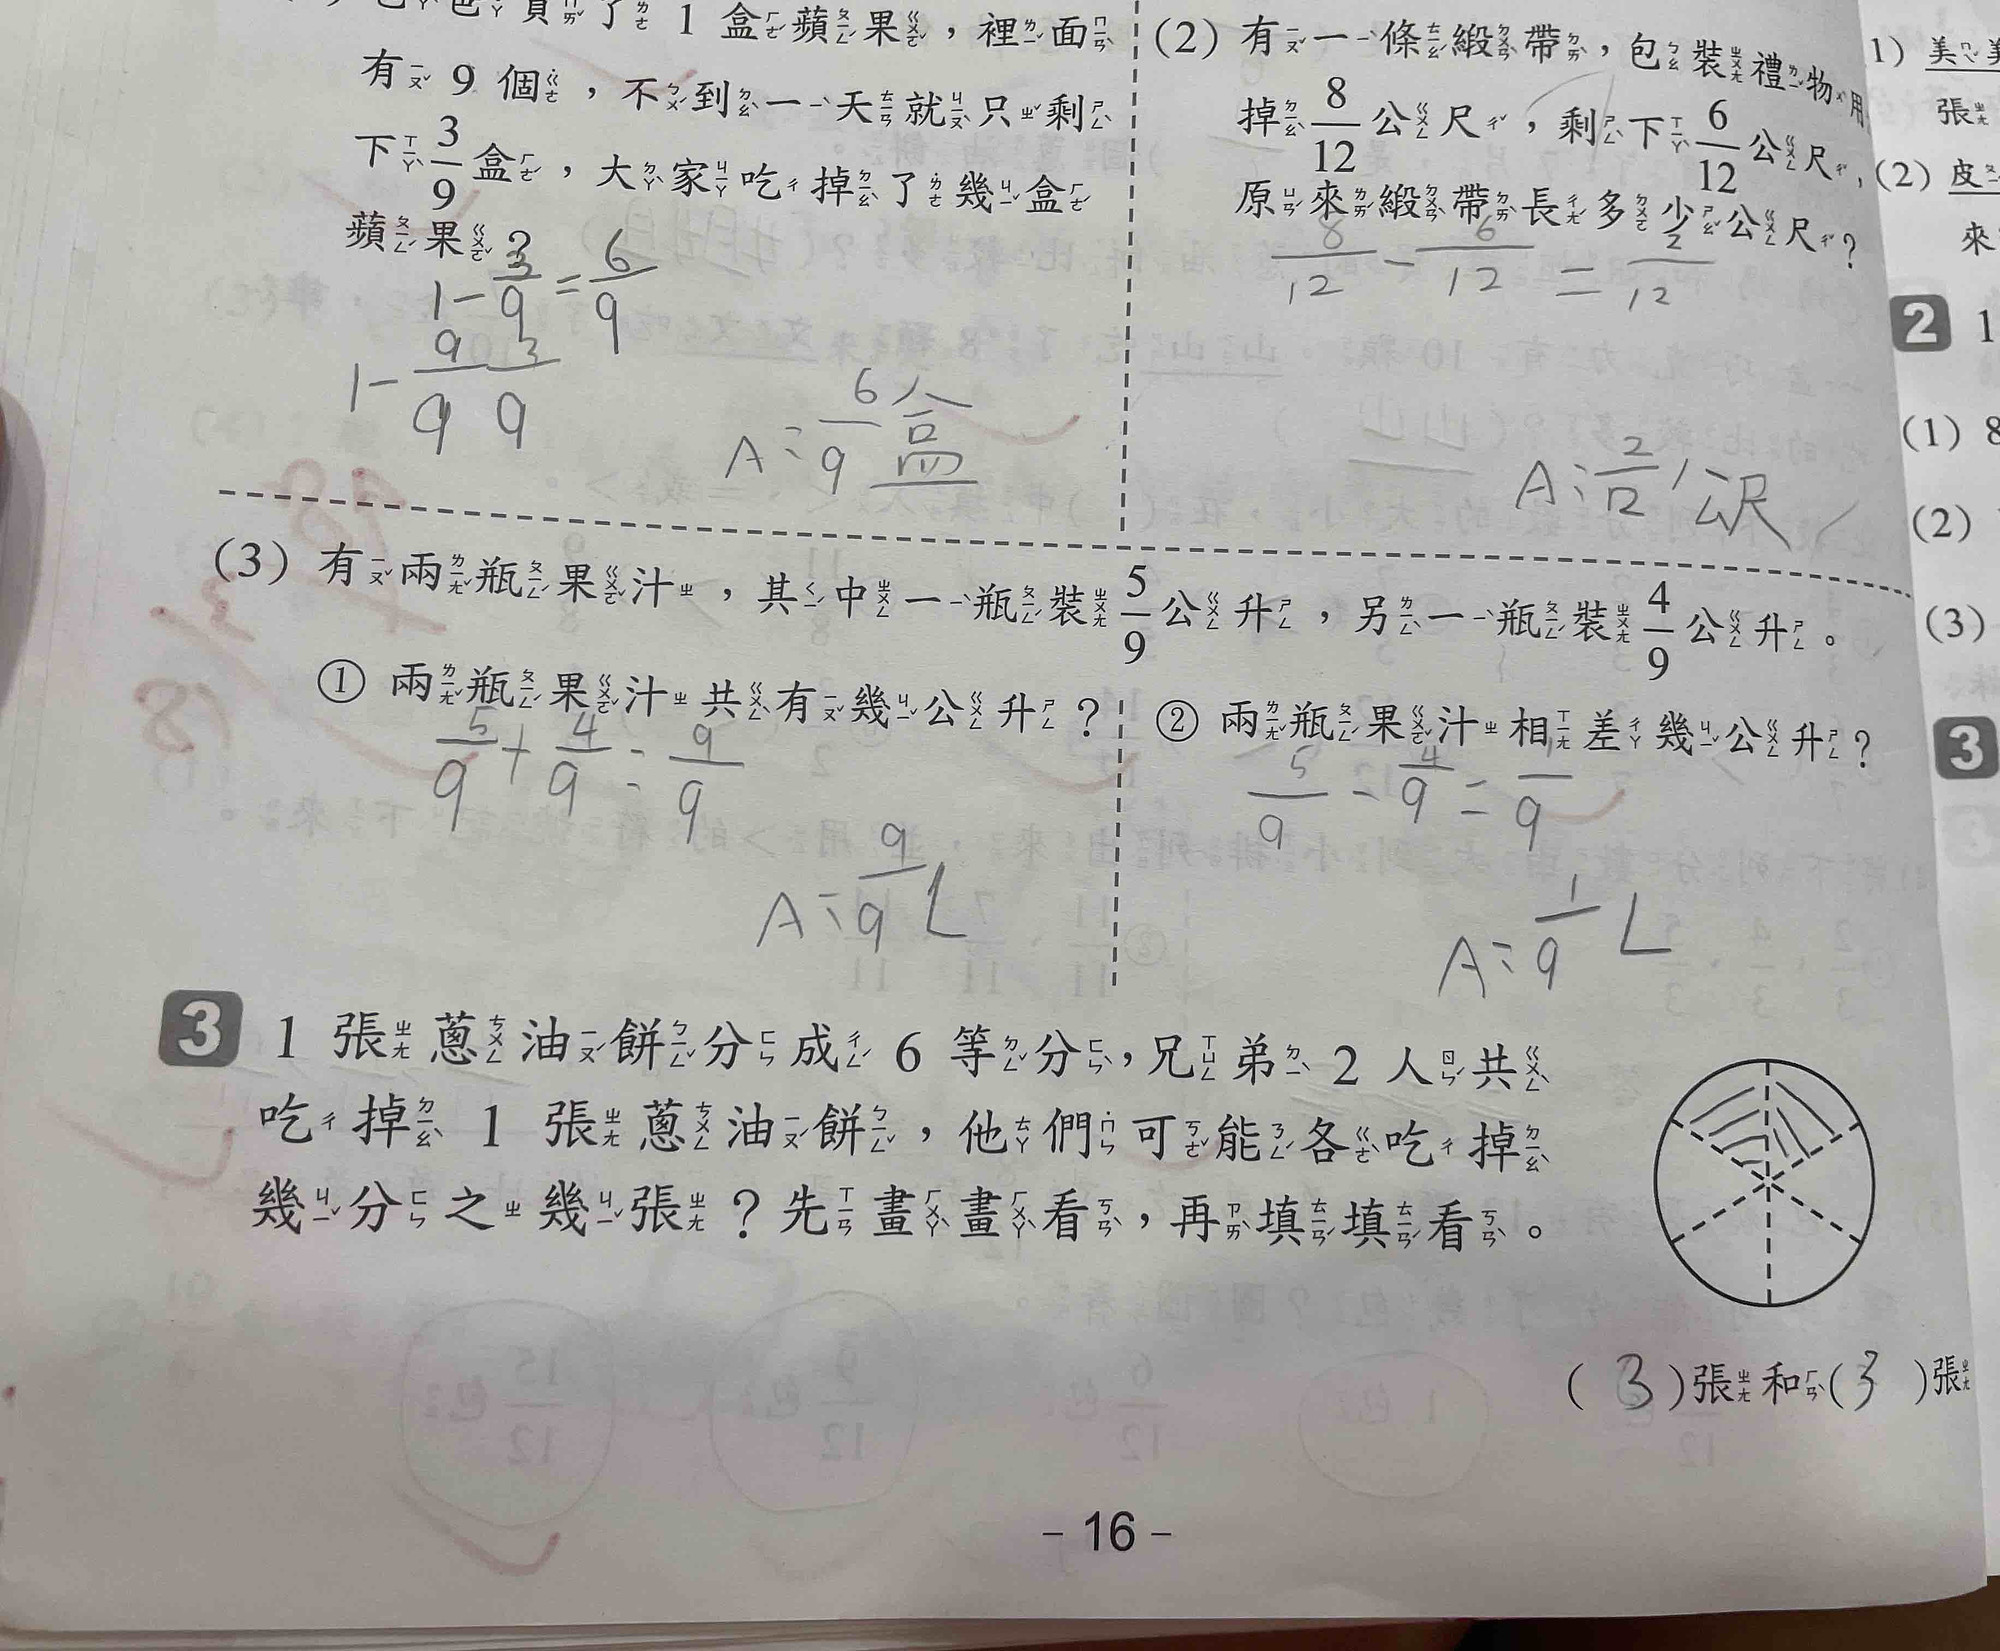 爸爸買了 1 盒蘋果，裡面
有 9 個，不到一天就只剩
下 3/9 盒，大家吃掉了幾盒
蘋果？
1-3/9=6/9
1-9/9 3/9
A：6/9盒
(2) 有一條緞帶，包裝禮物用
掉 8/12 公尺，剩下 6/12 公尺，
原來緞帶長多少公尺？
8/12-6/12=2/12
A：2/12公尺
(3) 有兩瓶果汁，其中一瓶裝 5/9 公升，另一瓶裝 4/9 公升。
① 兩瓶果汁共有幾公升？
5/9+4/9=9/9
A：9/9L
② 兩瓶果汁相差幾公升？
5/9-4/9=1/9
A：1/9L
3 1 張蔥油餅分成 6 等分，兄弟 2 人共
吃掉 1 張蔥油餅，他們可能各吃掉
幾分之幾張？先畫畫看，再填填看。
(3)張和(3)張
- 16 -
1) 美美
張
(2) 皮
來
2 1
(1) 8
(2)
(3)
3